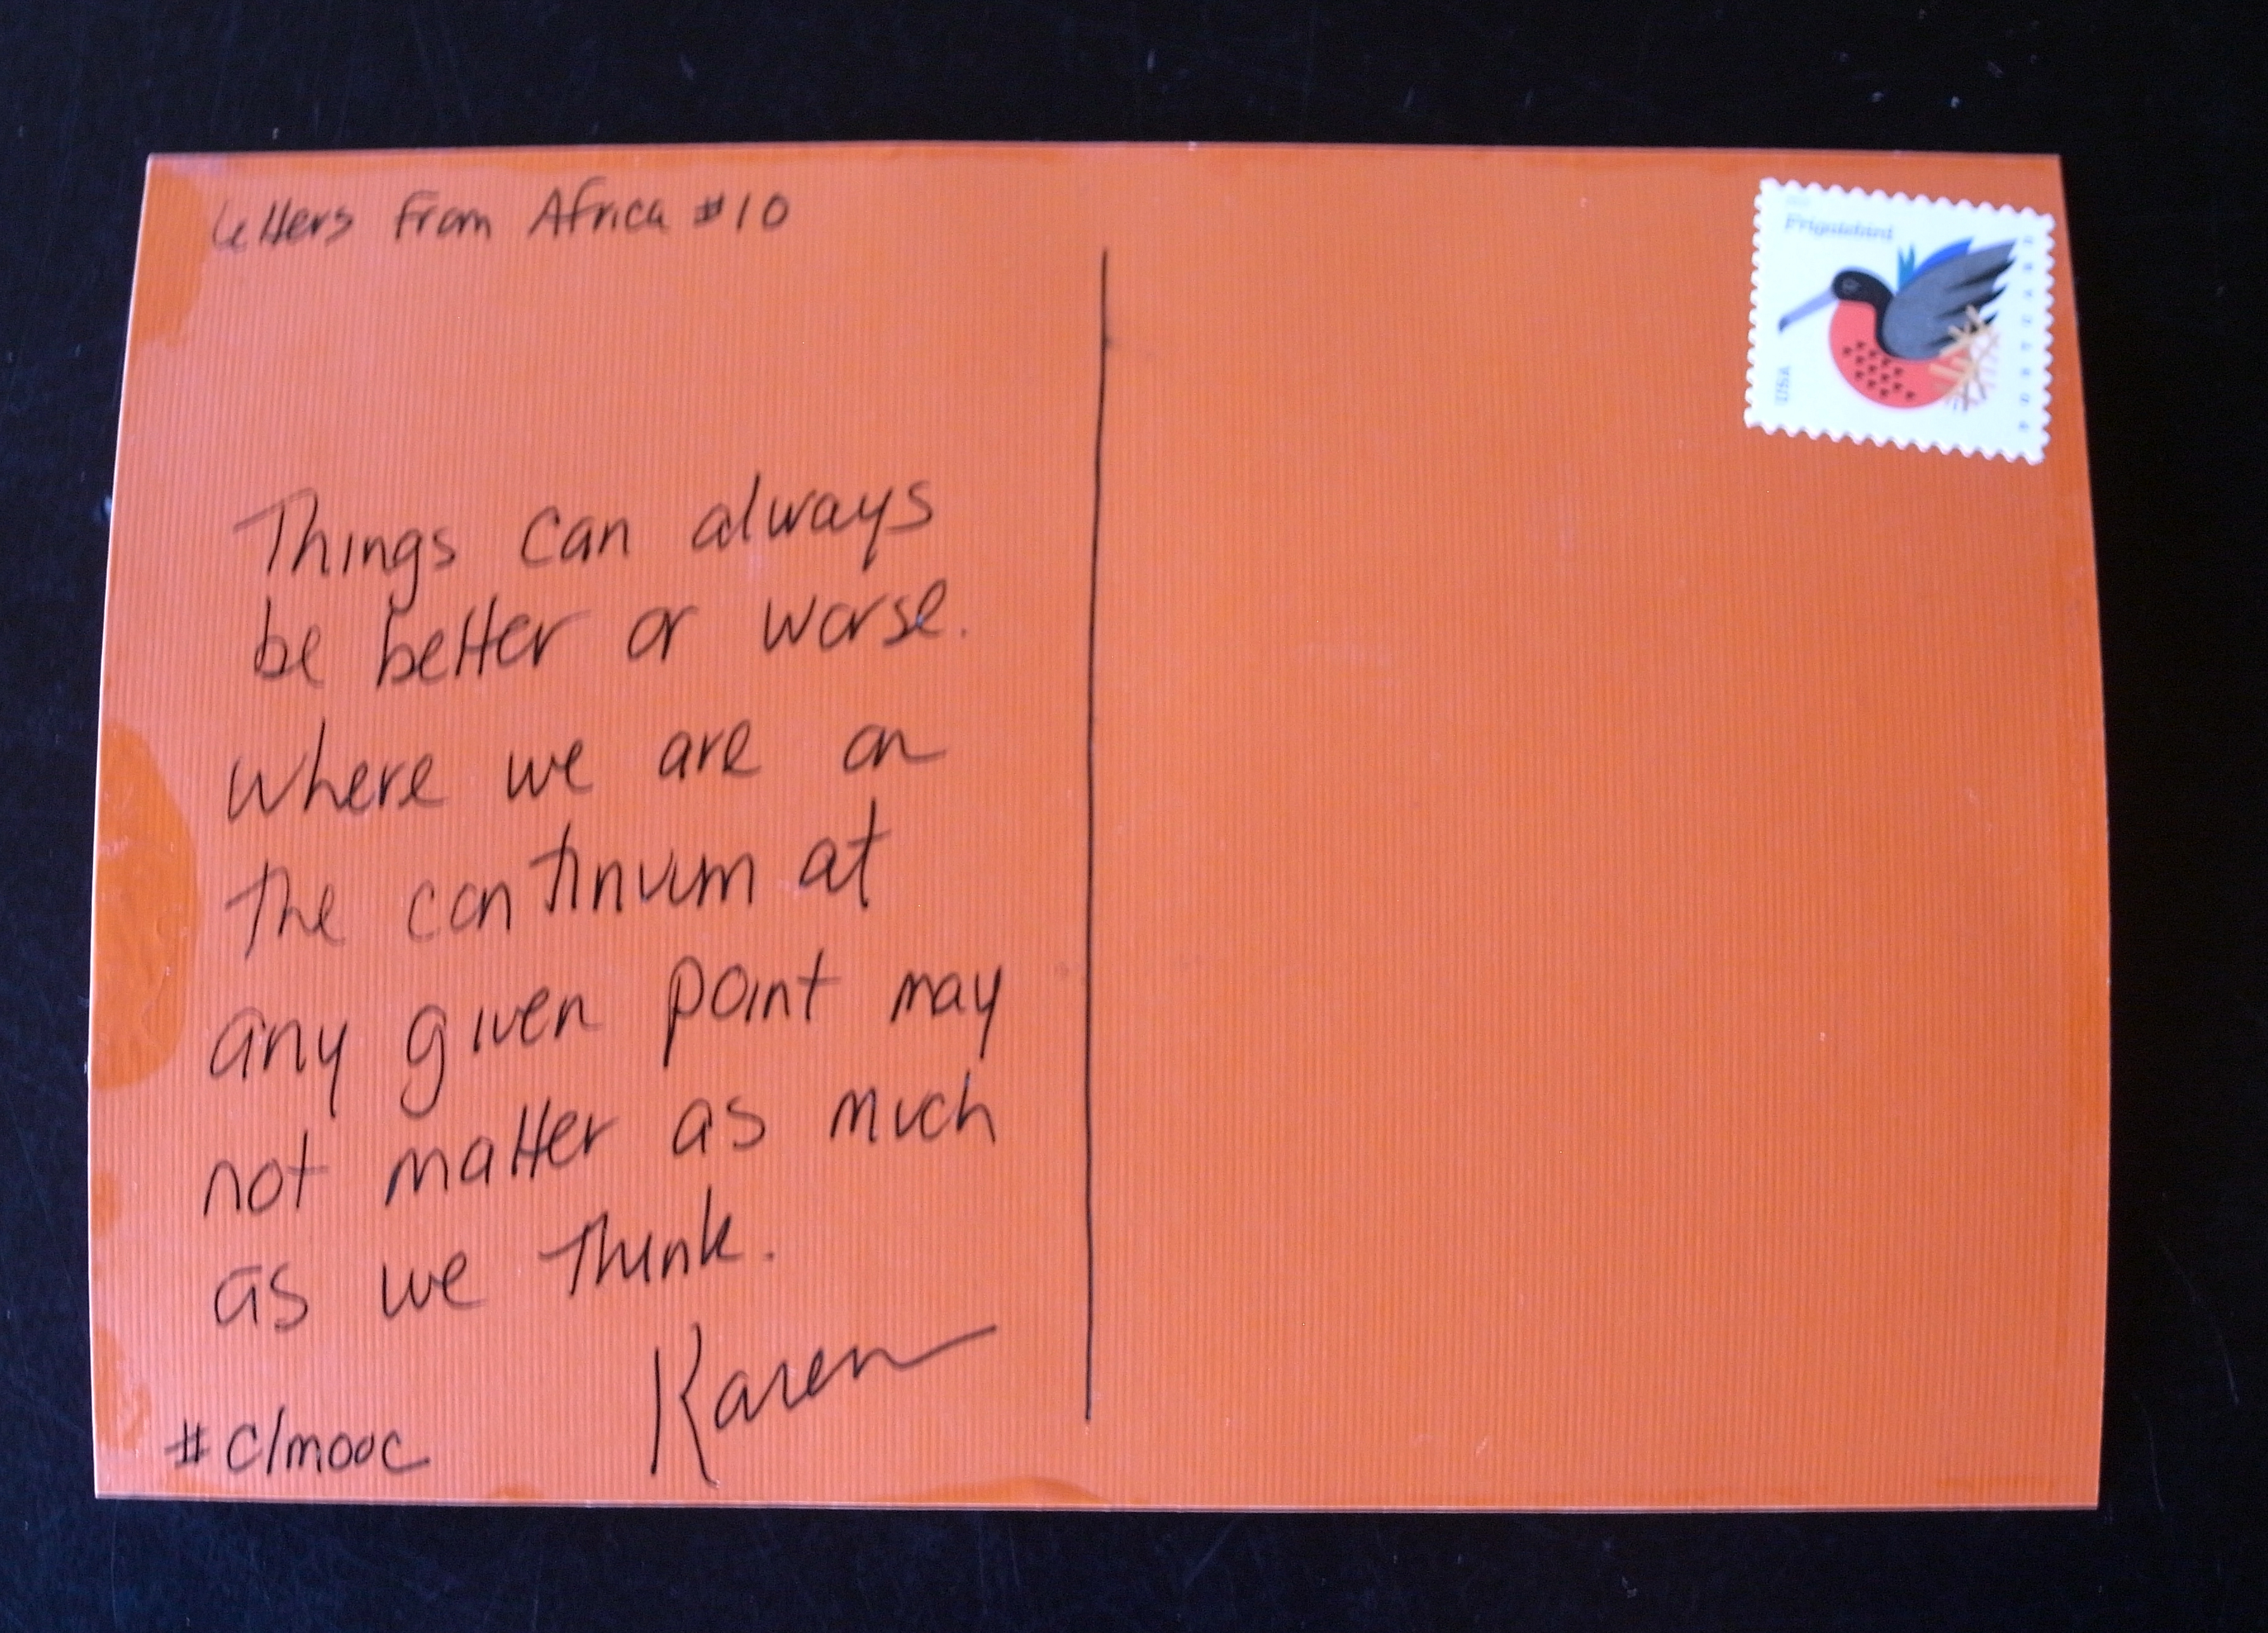 Letters From Africa #10
Things can always
be better or worse.
Where we are on
the continuum at
any given point may
not matter as much
as we think.
Karen
#clmooc
Frigatebird
USA
POSTCARD